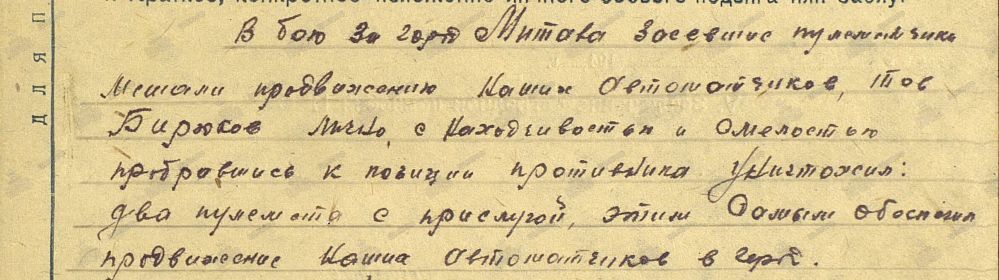 I. Краткое, конкретное изложение личного боевого подвига или заслуг
В бою за город Митава засевшие пулеметчики
мешали продвижению наших автоматчиков, тов
Бирюков лично с находчивостью и смелостью
пробравшись к позиции противника уничтожил:
два пулемета с прислугой, этим самым обеспечил
продвижение наших автоматчиков в город.
ДЛЯ П